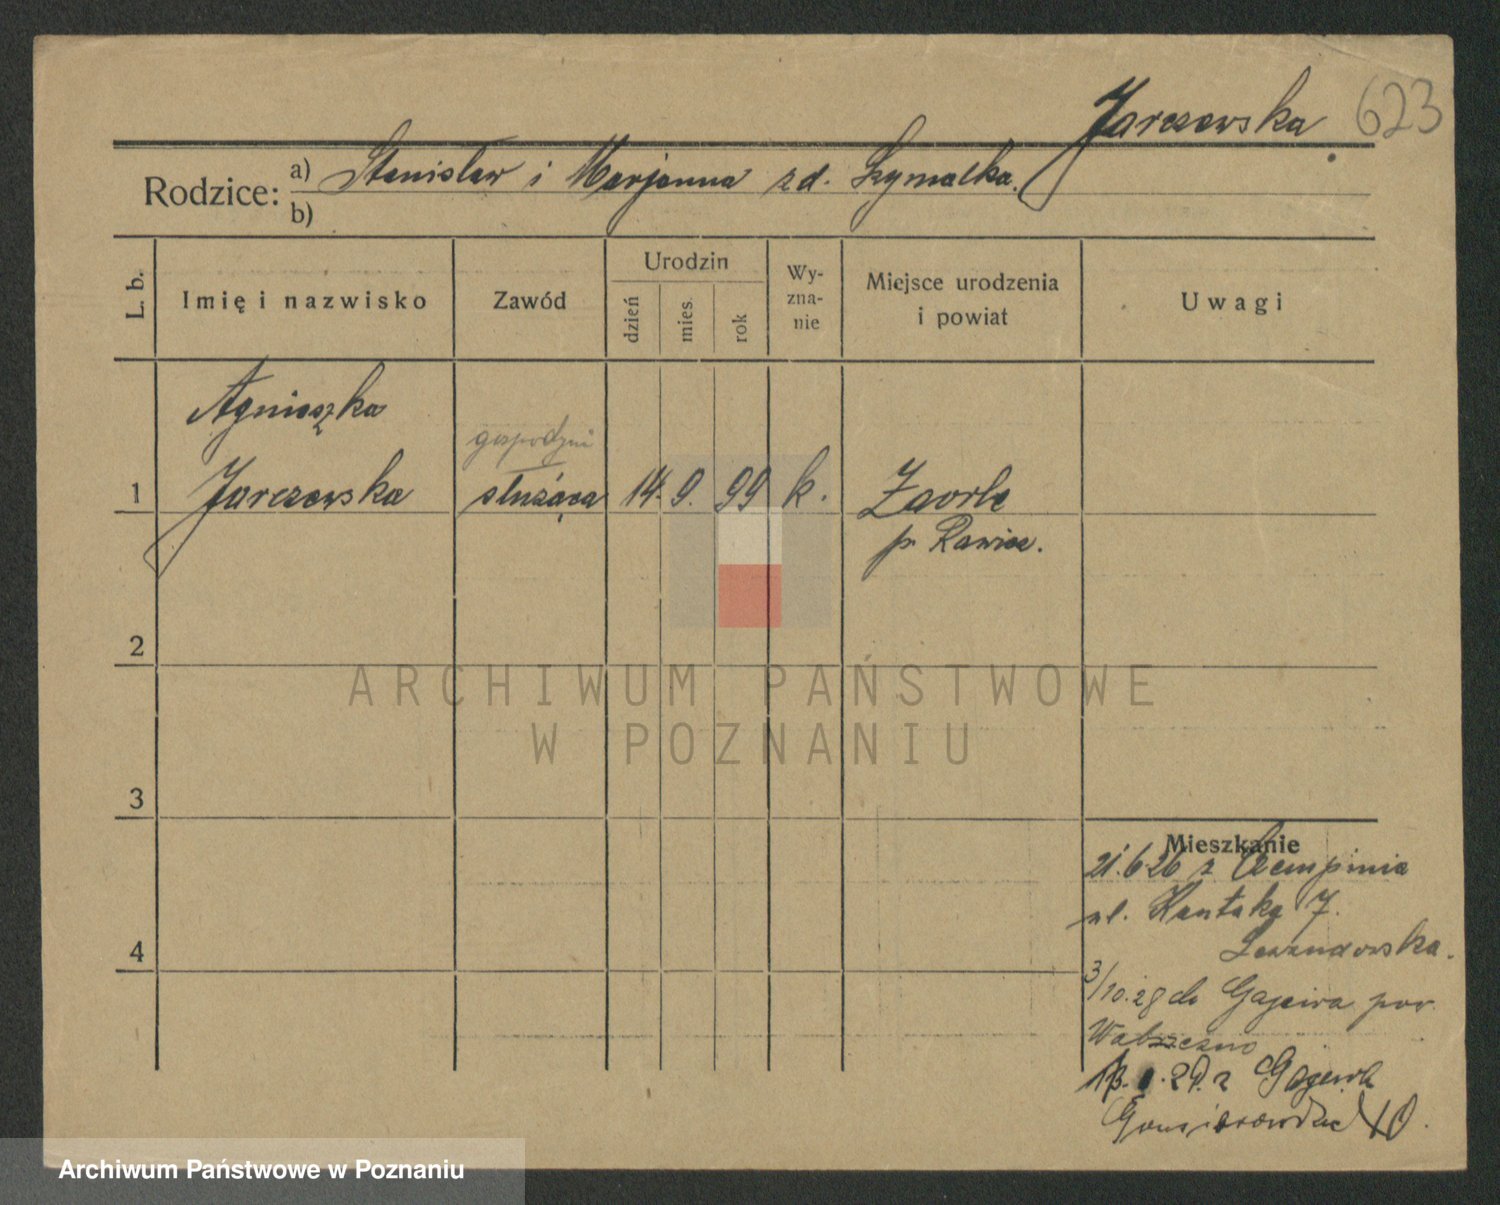 Jarczewska 623
Rodzice: a) Stanisław i Marjanna zd. Szymalka.
b)
L. b. Imię i nazwisko Zawód Urodzin dzień mies. rok Wyzna-nie Miejsce urodzenia i powiat Uwagi
Agnieszka
gospodyni
1 Jarczewska służąca 14. 9. 99 k. Zaorle
p. Rawicz.
2
ARCHIWUM PAŃSTWOWE
W POZNANIU
3
Mieszkanie
21.6.26 z Czempinia
ul. Kantaka 7.
4
3/10.28 do Gajewa pow.
Wąbrzeźno
29. z Gajewa
Archiwum Państwowe w Poznaniu